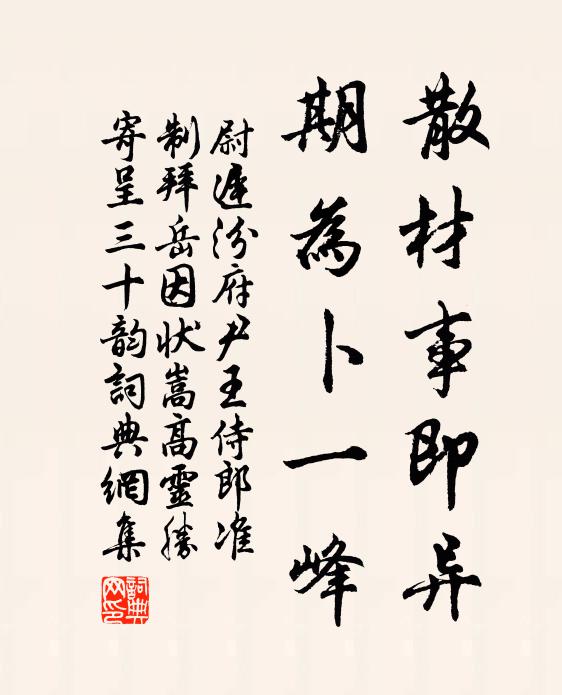 散材事即异
期為卜一峰
尉遲汾府尹王侍郎准
制拜岳因状嵩高靈勝
寄呈三十韵詞典網集
詞典网印